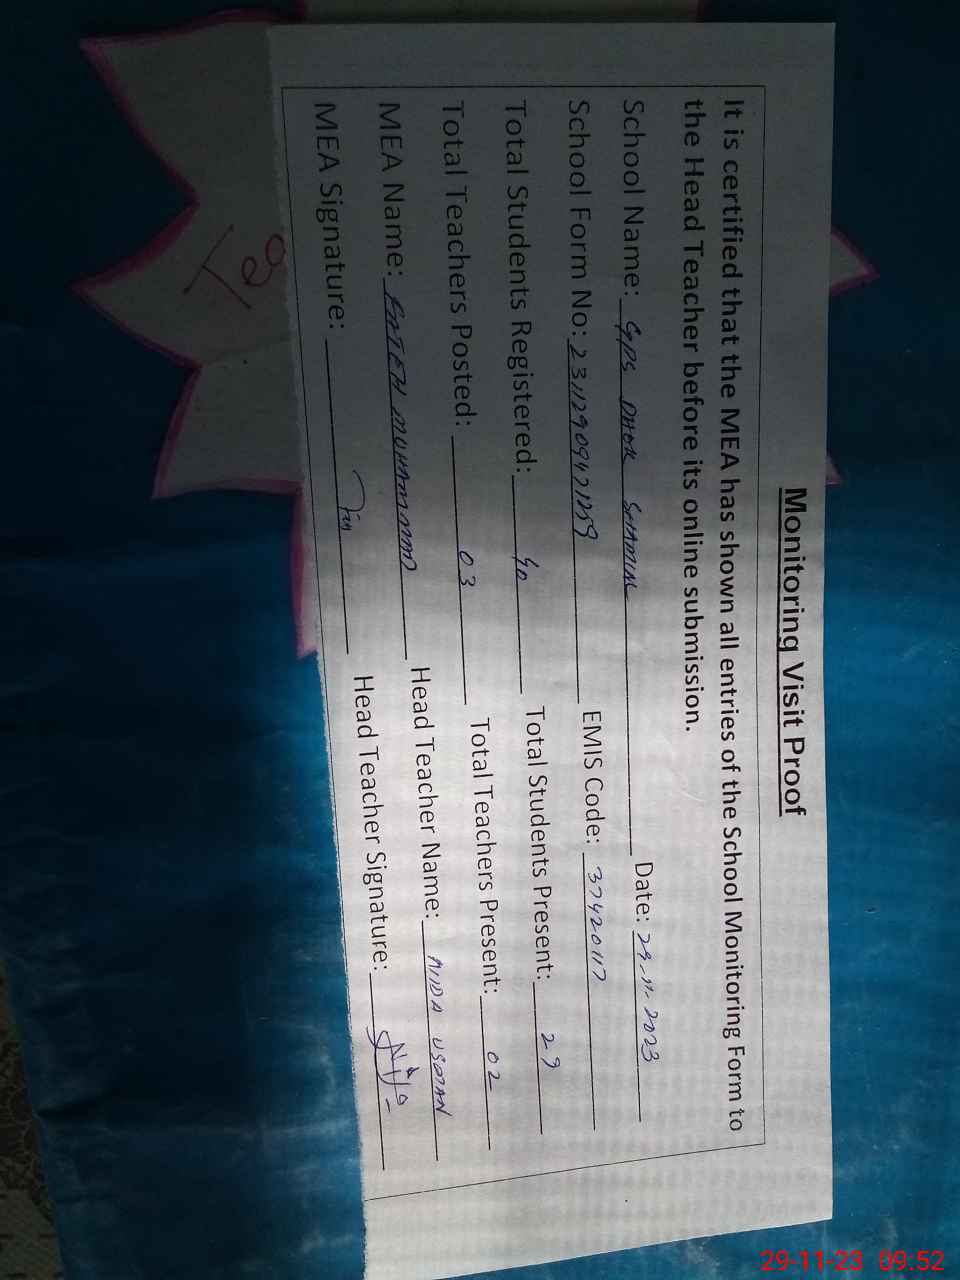 Monitoring Visit Proof
It is certified that the MEA has shown all entries of the School Monitoring Form to
the Head Teacher before its online submission.
School Name: GPS DHOK Date: 29-11-2023
School Form No: 23112909471259 EMIS Code: 37420117
Total Students Registered: 40 Total Students Present: 29
Total Teachers Posted: 03 Total Teachers Present: 02
MEA Name: FATEH MUHAMMAD Head Teacher Name: AIIDA USMAN
MEA Signature: Head Teacher Signature:
Tea
29-11-23 09:52